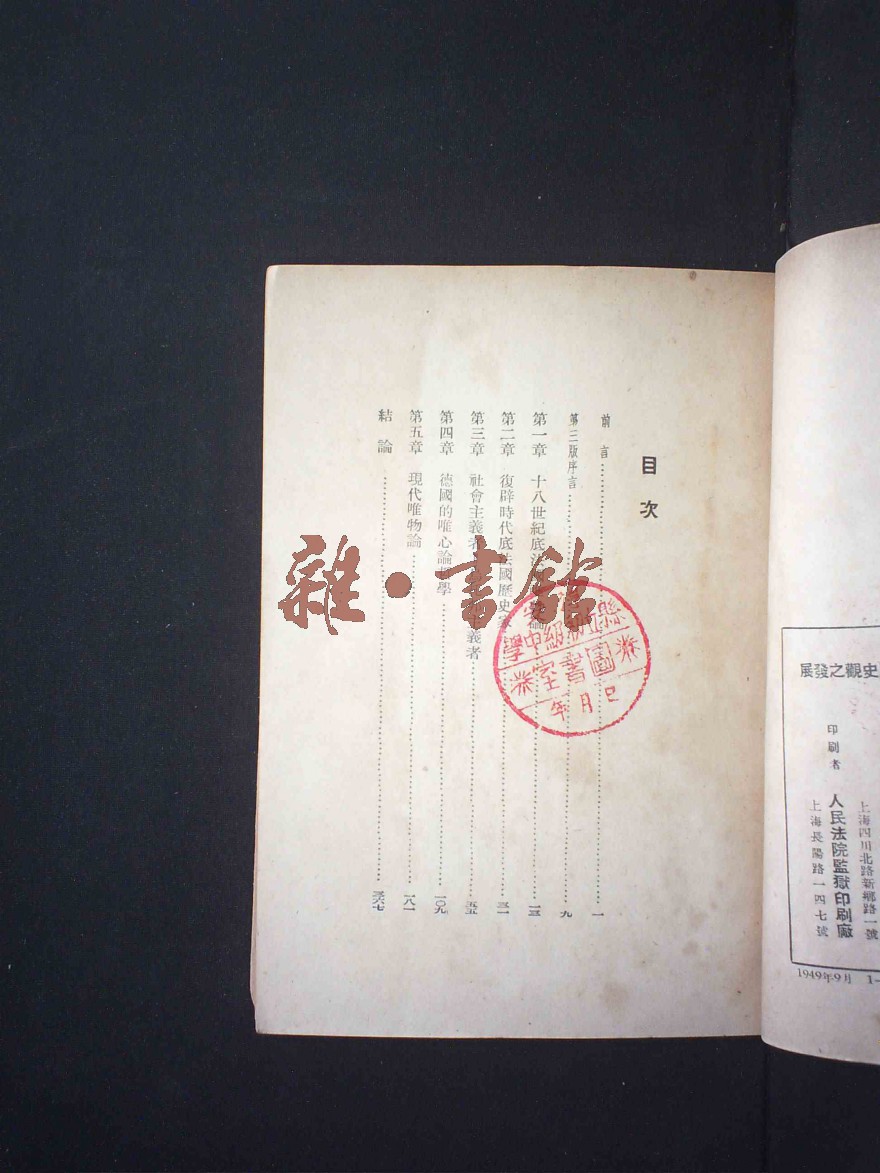 目次
前言 一
第三版序言 九
第一章 十八世紀底法 論 一三
第二章 復辟時代底法國歷史家 三一
第三章 社會主義者 義者 五五
第四章 德國的唯心論哲學 一〇九
第五章 現代唯物論 一八一
結論 三六七
雜·書館
縣立初級中學
圖書室
年月日
史觀之發展
印刷者
人民法院監獄印刷廠
上海長陽路一四七號
上海四川北路新鄉路一號
1949年9月 1-